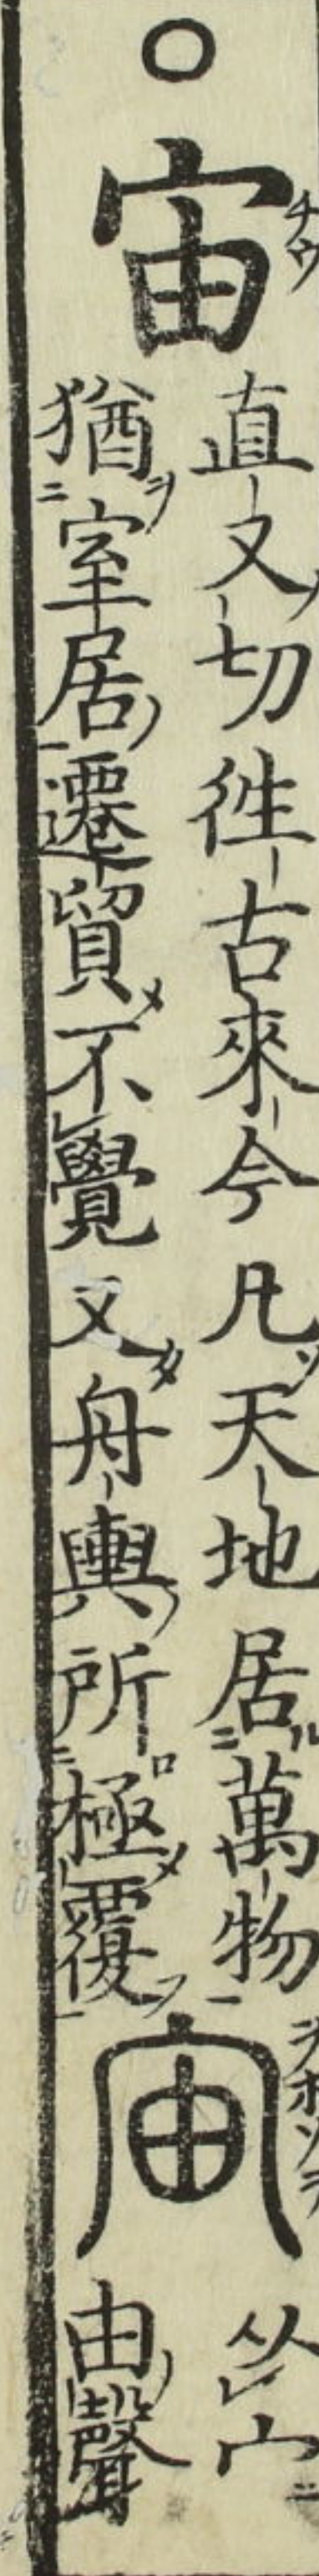 ○宙チウ
直又切徃古來今凡天地居萬物
猶室居遷貿不覺又舟輿所極覆
宙ヲホソラ
从宀
由聲